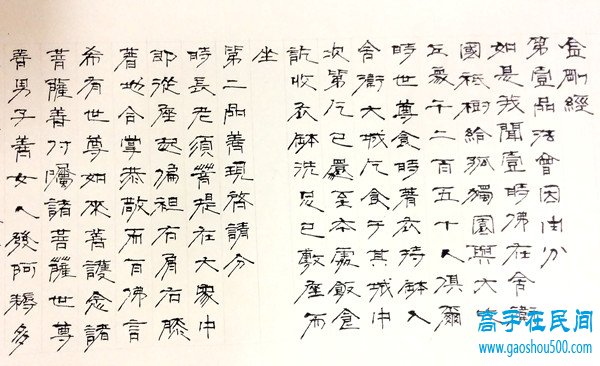 金剛經
第壹品法會因由分
如是我聞壹時佛在舍衛
國祇樹給孤獨園與大比
丘衆千二百五十人俱爾
時世尊食時著衣持鉢入
舍衛大城乞食于其城中
次第乞已還至本處飯食
訖收衣鉢洗足已敷座而
坐
第二品善現啓請分
時長老須菩提在大衆中
即從座起偏袒右肩右膝
著地合掌恭敬而白佛言
希有世尊如來善護念諸
菩薩善付囑諸菩薩世尊
善男子善女人發阿耨多
高手在民间
www.gaoshou500.com